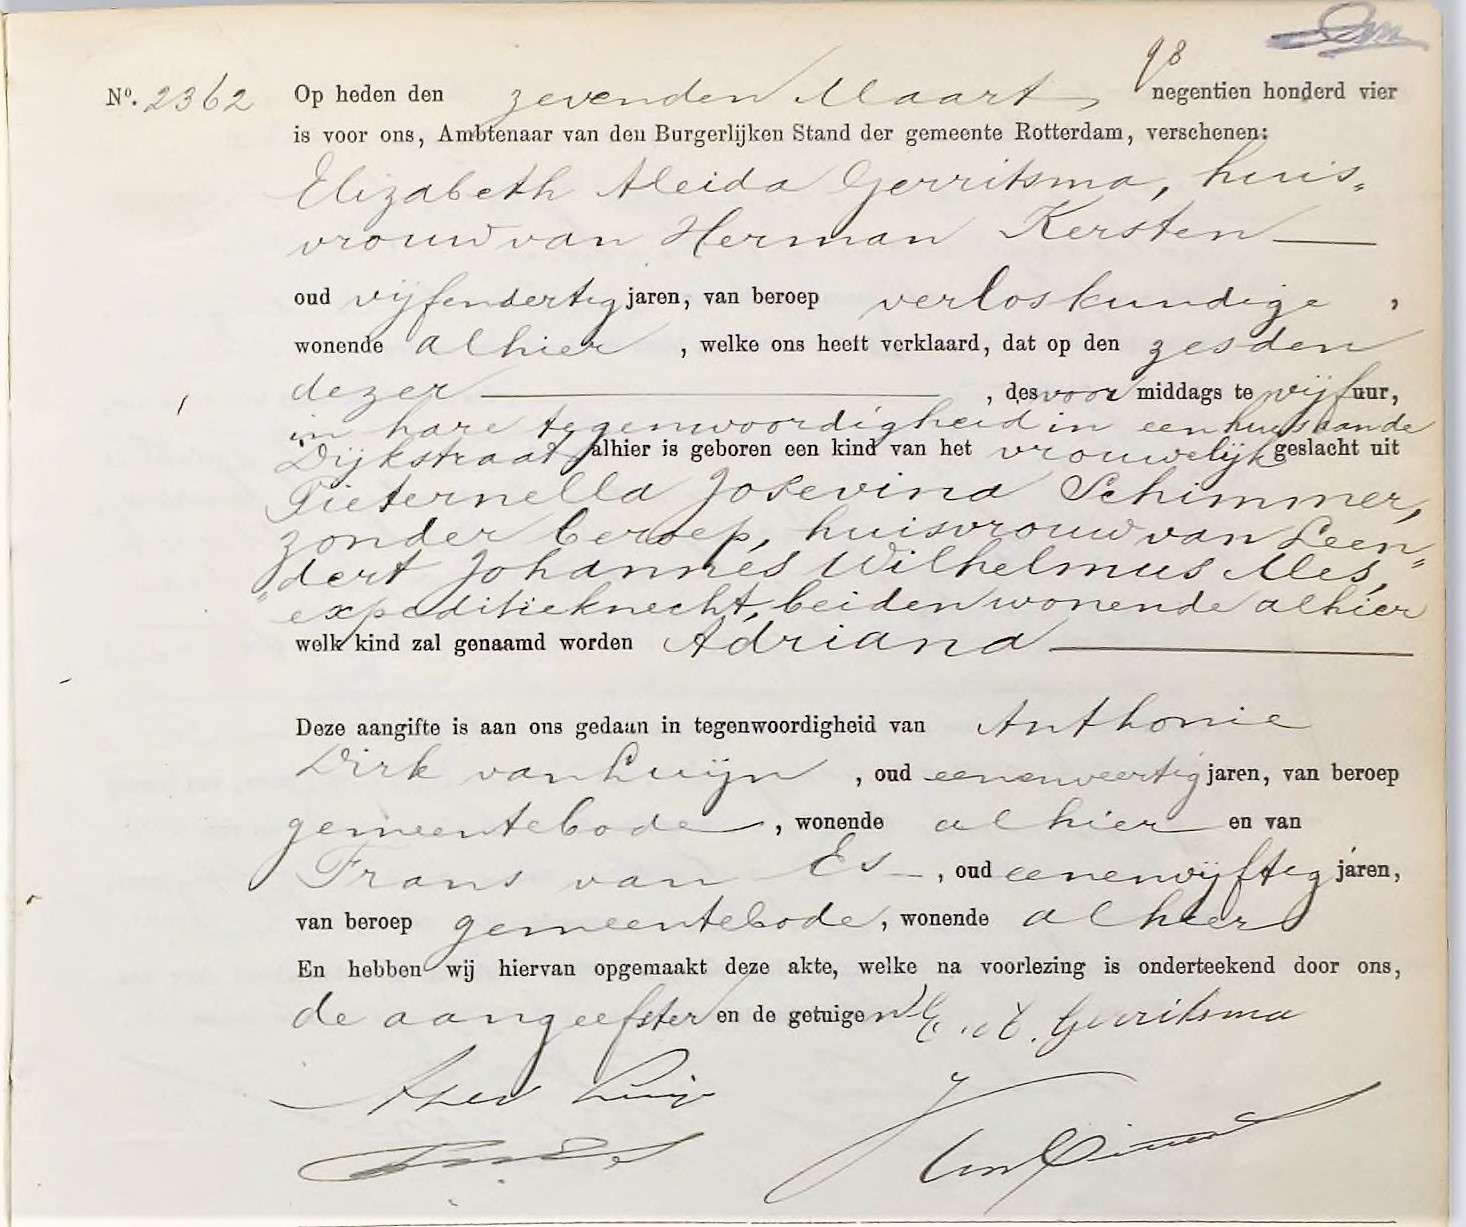 98
Nº. 2362 Op heden den zevenden Maart, negentien honderd vier
is voor ons, Ambtenaar van den Burgerlijken Stand der gemeente Rotterdam, verschenen:
Elizabeth Aleida Gerritsma, huis„
vrouw van Herman Kersten
oud vijfendertig jaren, van beroep verloskundige,
wonende alhier, welke ons heeft verklaard, dat op den zesden
dezer, des voor middags te vijf uur,
in hare tegenwoordigheid in een huis aan de
Dijkstraat alhier is geboren een kind van het vrouwelijk geslacht uit
Pieternella Josevina Schimmer,
zonder beroep, huisvrouw van Leen„
„dert Johannes Wilhelmus Mes,
expeditieknecht, beiden wonende alhier
welk kind zal genaamd worden Adriana
Deze aangifte is aan ons gedaan in tegenwoordigheid van Anthonie
Dirk van Luijn, oud eenenveertig jaren, van beroep
gemeentebode, wonende alhier en van
Frans van Es, oud eenenvijftig jaren,
van beroep gemeentebode, wonende alhier
En hebben wij hiervan opgemaakt deze akte, welke na voorlezing is onderteekend door ons,
de aangeefster en de getuigen Gerritsma